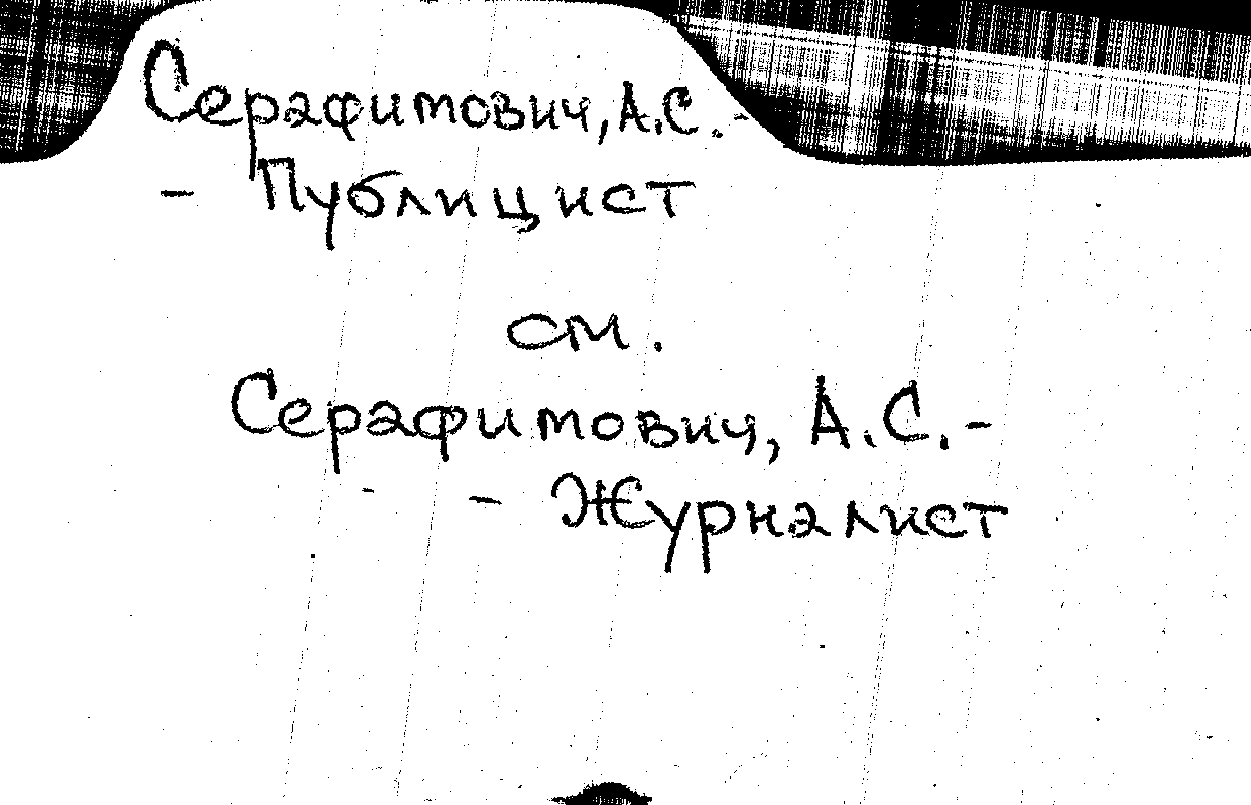 Серафимович, А.С. -
- Публицист
см.
Серафимович, А.С. -
- Журналист